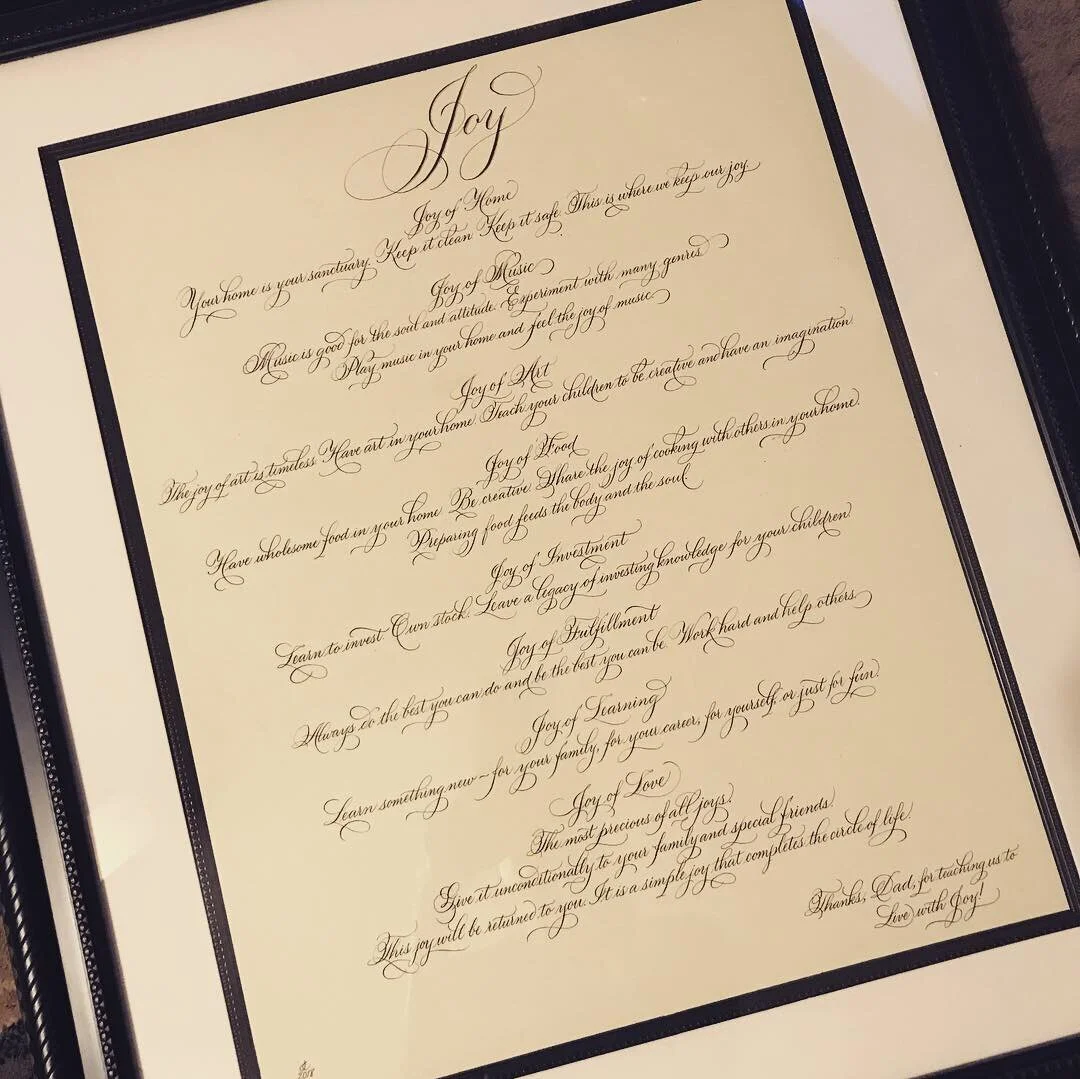 Joy
Joy of Home
Your home is your sanctuary. Keep it clean. Keep it safe. This is where we keep our joy.
Joy of Music
Music is good for the soul and attitude. Experiment with many genres
Play music in your home and feel the joy of music.
Joy of Art
The joy of art is timeless. Have art in your home. Teach your children to be creative and have an imagination
Joy of Food
Have wholesome food in your home. Be creative. Share the joy of cooking with others in your home.
Preparing food feeds the body and the soul.
Joy of Investment
Learn to invest. Own stock. Leave a legacy of investing knowledge for your children
Joy of Fulfillment
Always do the best you can do and be the best you can be. Work hard and help others
Joy of Learning
Learn something new – for your family, for your career, for yourself, or just for fun.
Joy of Love
The most precious of all joys.
Give it unconditionally to your family and special friends.
This joy will be returned to you. It is a simple joy that completes the circle of life.
Thanks, Dad, for teaching us to
Live with Joy!
2018